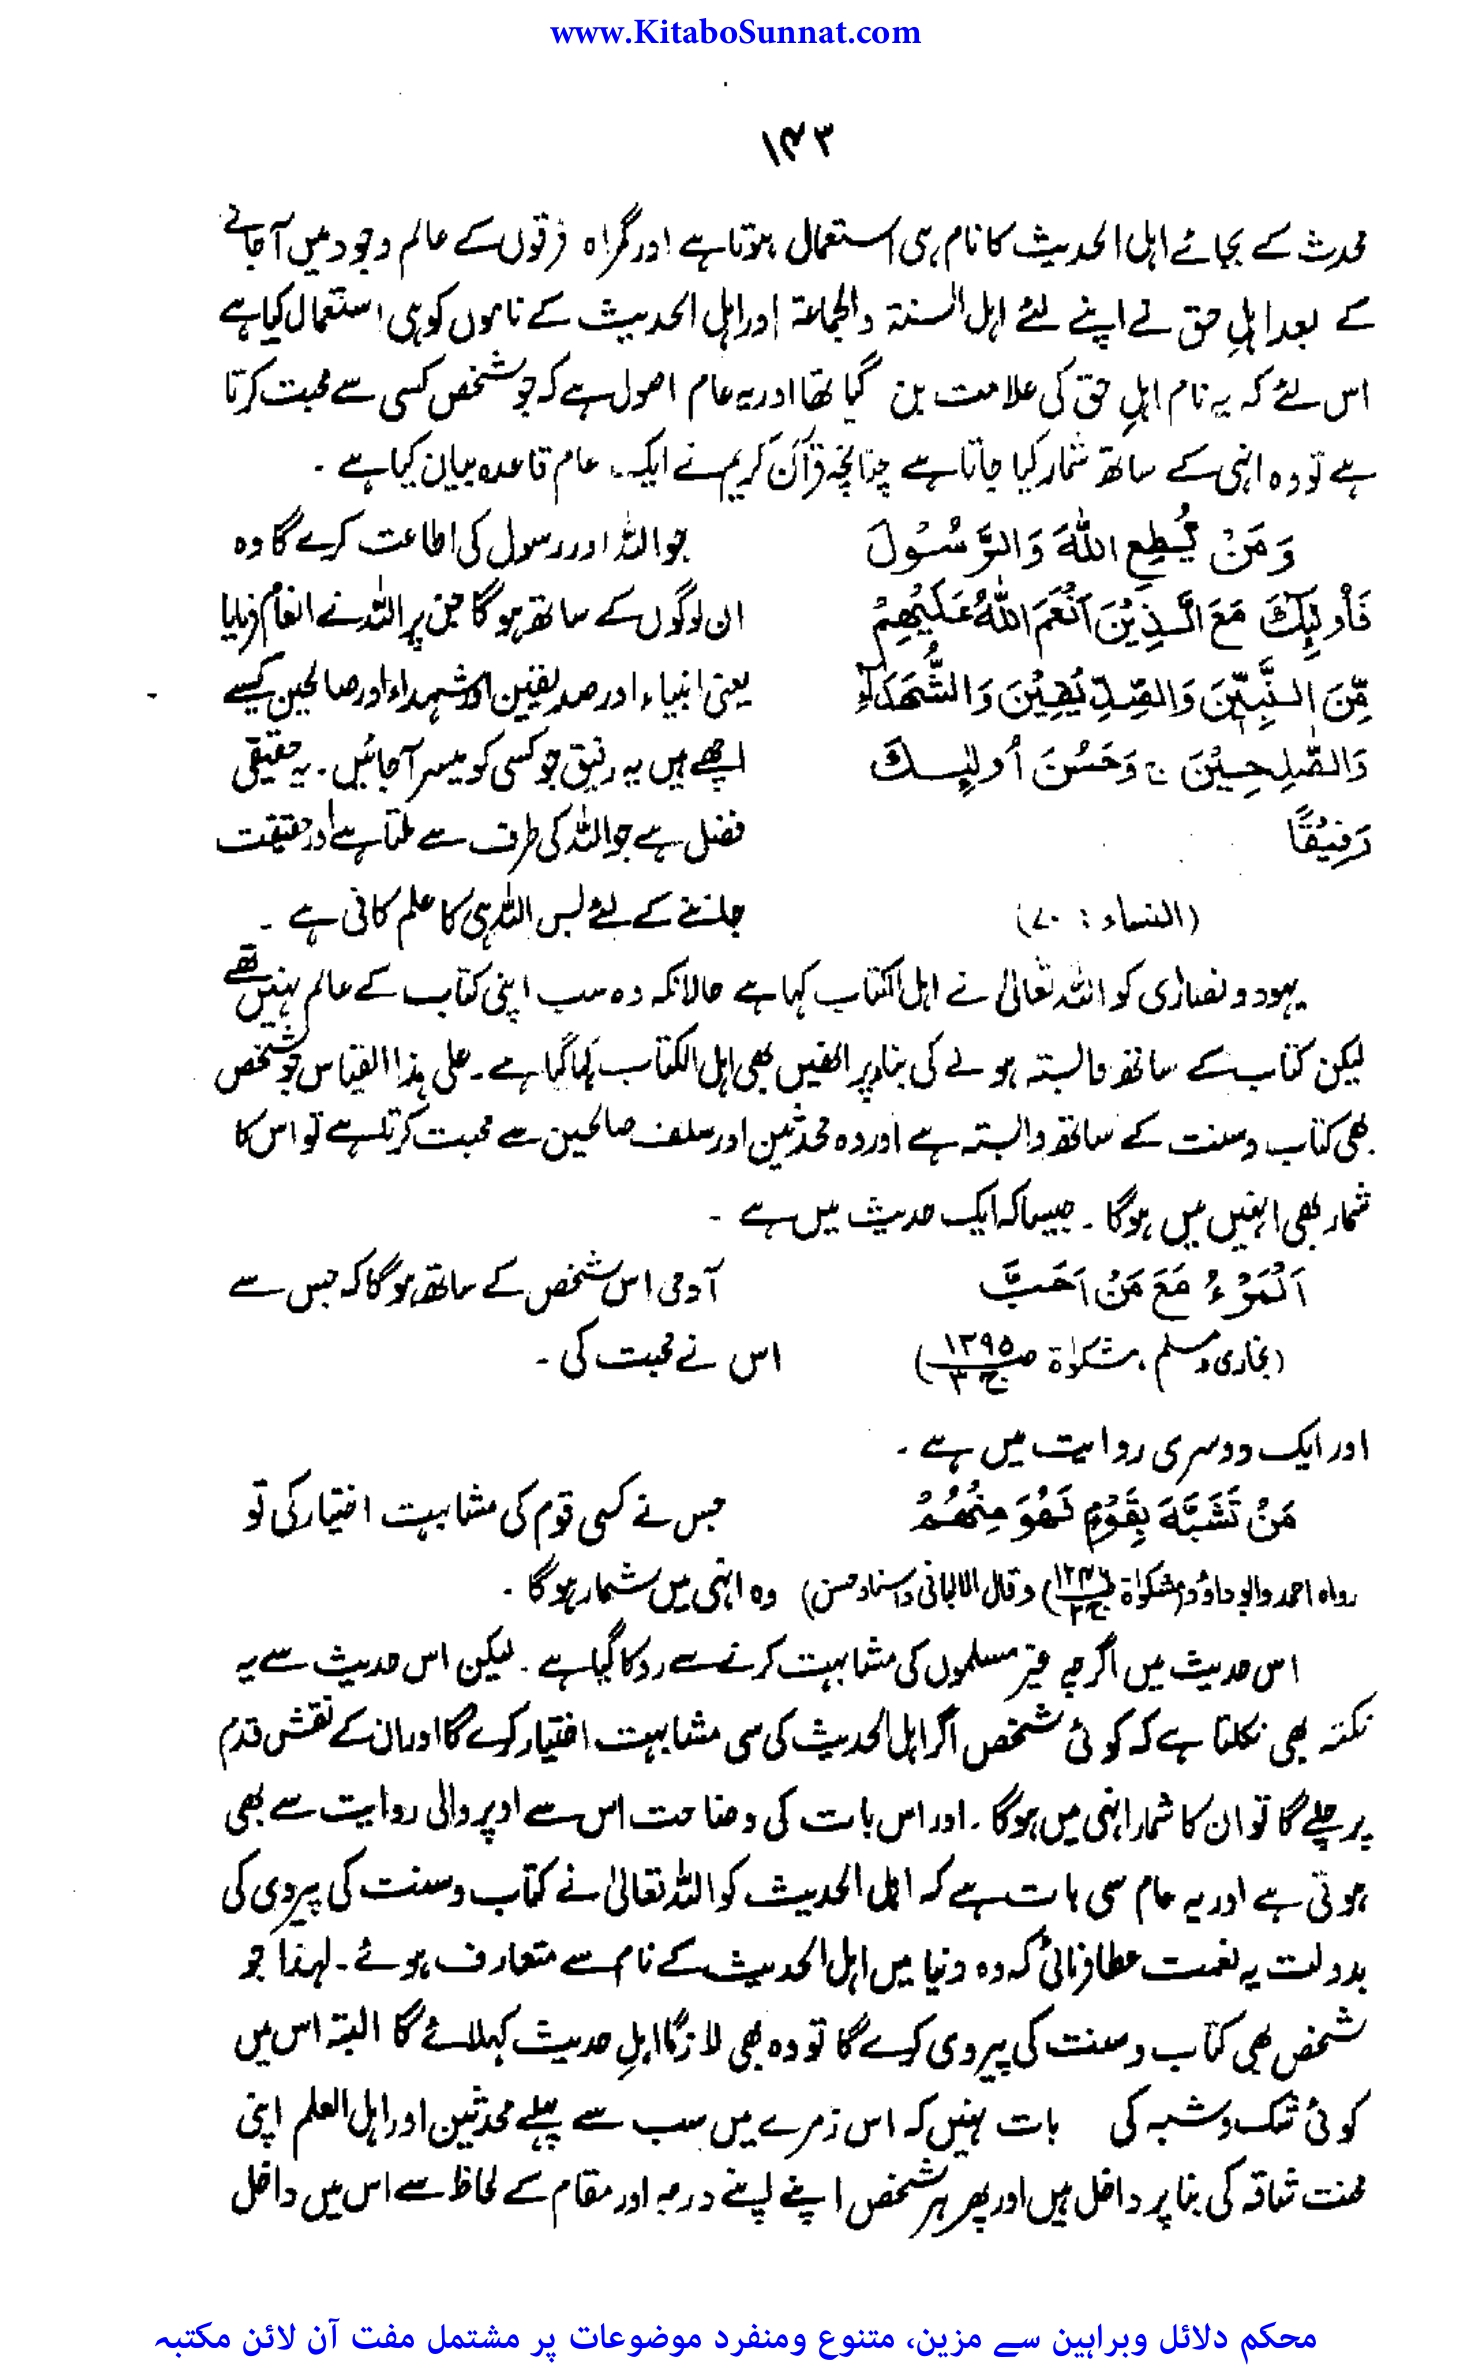 www.KitaboSunnat.com
۱۴۳
محدث کے بجائے اہل الحدیث کا نام ہی استعمال ہوتا ہے اور گمراہ فرقوں کے عالم وجود میں آجانے
کے بعد اہلِ حق نے اپنے لئے اہل السنۃ والجماعۃ اور اہل الحدیث کے ناموں کو ہی استعمال کیا ہے
اس لئے کہ یہ نام اہلِ حق کی علامت بن گیا تھا اور یہ عام اصول ہے کہ جو شخص کسی سے محبت کرتا
ہے تو وہ انہی کے ساتھ شمار کیا جاتا ہے چنانچہ قرآن کریم نے ایک عام قاعدہ بیان کیا ہے ۔
وَمَنْ يُّطِعِ اللّٰهَ وَالرَّسُوْلَ جو اللہ اور رسول کی اطاعت کرے گا وہ
فَاُولٰٓئِكَ مَعَ الَّذِيْنَ اَنْعَمَ اللّٰهُ عَلَيْهِمْ ان لوگوں کے ساتھ ہوگا جن پر اللہ نے انعام فرمایا
مِّنَ النَّبِيّٖنَ وَالصِّدِّيْقِيْنَ وَالشُّهَدَآءِ یعنی انبیاء اور صدیقین اور شہداء اور صالحین کیسے
وَالصّٰلِحِيْنَ ج وَحَسُنَ اُولٰٓئِكَ اچھے ہیں یہ رفیق جو کسی کو میسر آجائیں ۔ یہ حقیقی
رَفِيْقًا فضل ہے جو اللہ کی طرف سے ملتا ہے اور حقیقت
(النساء : ۷۰) جاننے کے لئے بس اللہ ہی کا علم کافی ہے ۔
یہود و نصاریٰ کو اللہ تعالیٰ نے اہل الکتاب کہا ہے حالانکہ وہ سب اپنی کتاب کے عالم نہیں تھے
لیکن کتاب کے ساتھ وابستہ ہونے کی بناء پر انھیں بھی اہل الکتاب کہا گیا ہے ۔ علی ہذا القیاس جو شخص
بھی کتاب و سنت کے ساتھ وابستہ ہے اور وہ محدثین اور سلف صالحین سے محبت کرتا ہے تو اس کا
شمار بھی انہیں میں ہوگا ۔ جیسا کہ ایک حدیث میں ہے ۔
اَلْمَرْءُ مَعَ مَنْ اَحَبَّ آدمی اس شخص کے ساتھ ہوگا کہ جس سے
(بخاری و مسلم ، مشکوٰۃ ص ۱۳۹۵ ج ۳) اس نے محبت کی ۔
اور ایک دوسری روایت میں ہے ۔
مَنْ تَشَبَّهَ بِقَوْمٍ فَهُوَ مِنْهُمْ جس نے کسی قوم کی مشابہت اختیار کی تو
رواہ احمد وابو داؤد (مشکوٰۃ ج ۲) وقال الالبانی واسنادہ حسن) وہ انہی میں شمار ہوگا ۔
اس حدیث میں اگرچہ غیر مسلموں کی مشابہت کرنے سے روکا گیا ہے ۔ لیکن اس حدیث سے یہ
نکتہ بھی نکلتا ہے کہ کوئی شخص اگر اہل الحدیث کی سی مشابہت اختیار کرے گا اور ان کے نقش قدم
پر چلے گا تو ان کا شمار انہی میں ہوگا ۔ اور اس بات کی وضاحت اس سے اوپر والی روایت سے بھی
ہوتی ہے اور یہ عام سی بات ہے کہ اہل الحدیث کو اللہ تعالیٰ نے کتاب و سنت کی پیروی کی
بدولت یہ نعمت عطا فرمائی کہ وہ دنیا میں اہل الحدیث کے نام سے متعارف ہوئے ۔ لہذا جو
شخص بھی کتاب و سنت کی پیروی کرے گا تو وہ بھی لازمًا اہلِ حدیث کہلائے گا البتہ اس میں
کوئی شک و شبہ کی بات نہیں کہ اس زمرے میں سب سے پہلے محدثین اور اہل العلم اپنی
محنت شاقہ کی بنا پر داخل ہیں اور پھر ہر شخص اپنے اپنے درجہ اور مقام کے لحاظ سے اس میں داخل
محکم دلائل وبراہین سے مزین، متنوع ومنفرد موضوعات پر مشتمل مفت آن لائن مکتبہ